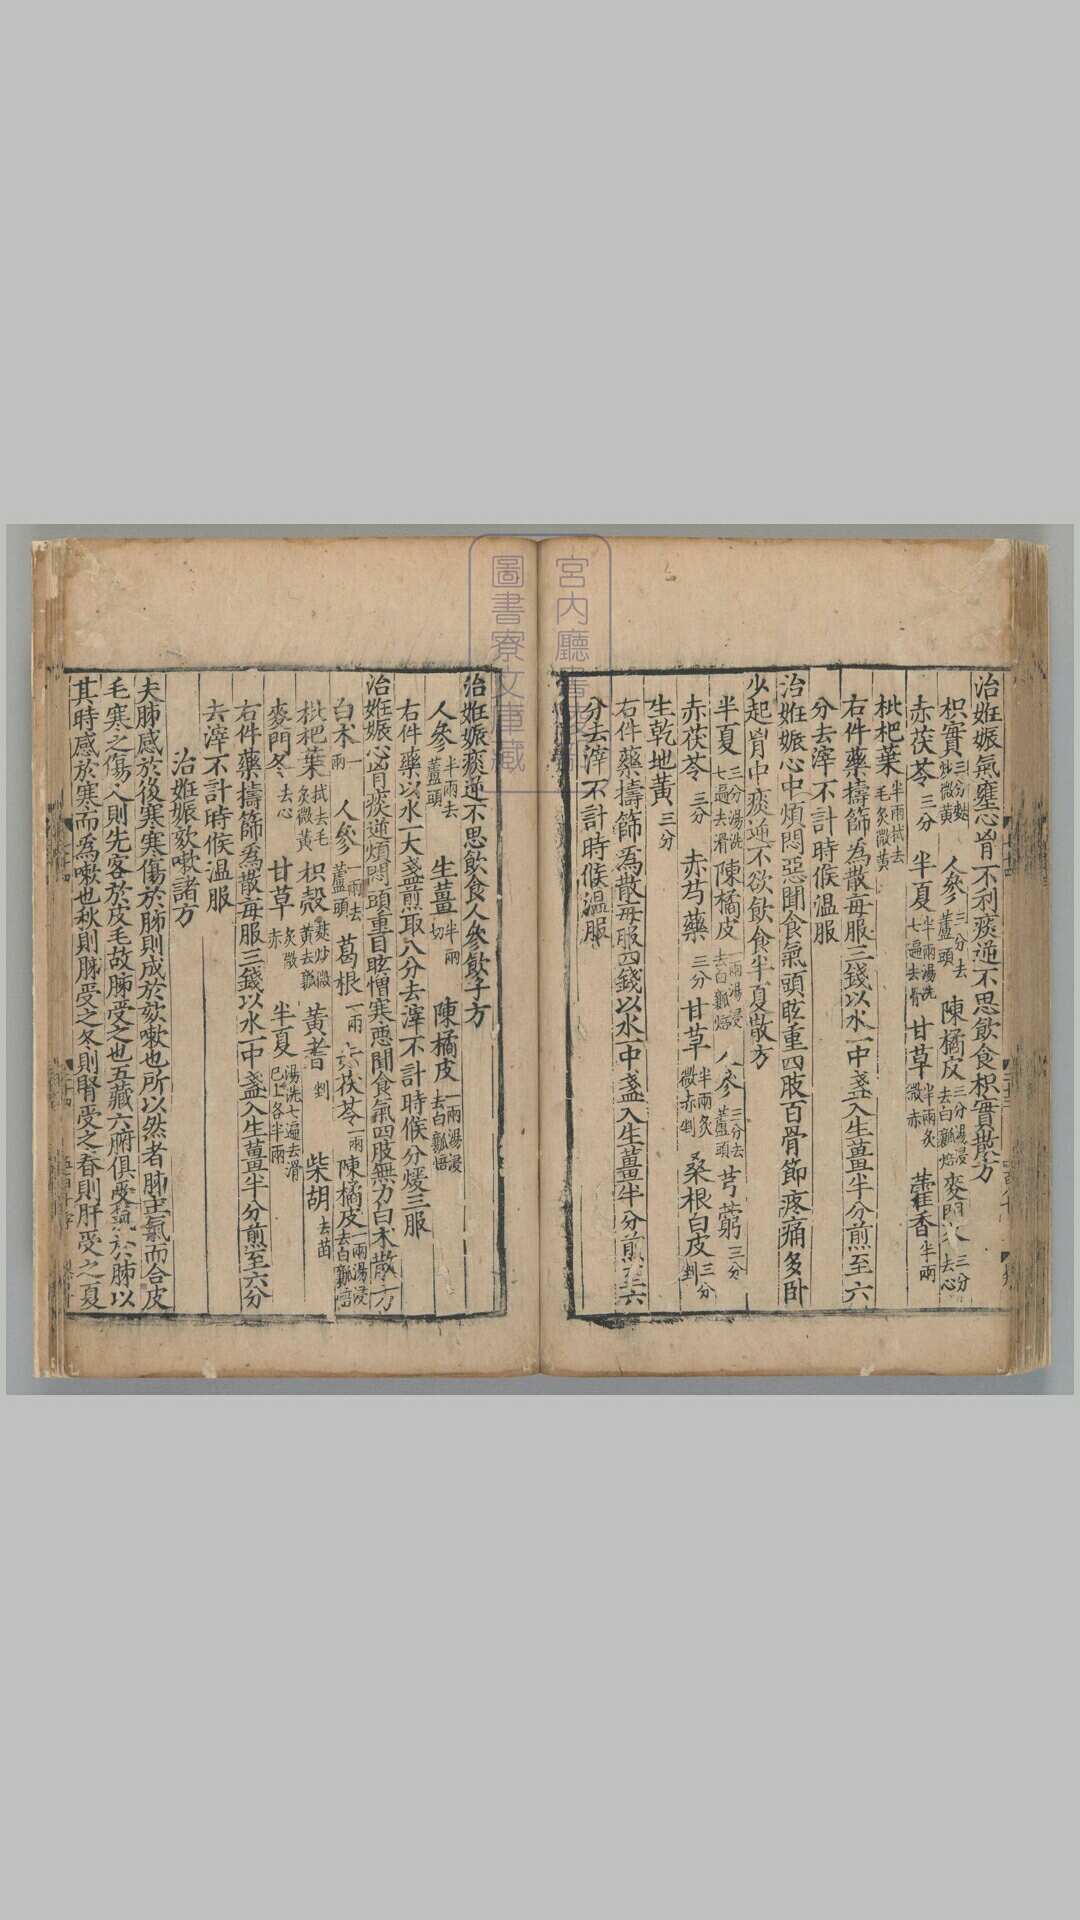 治姙娠氣壅心胷不利痰逆不思飲食枳實散方
枳實三分麩炒微黃 人參三分去蘆頭 陳橘皮三分湯浸去白瓤焙 麥門冬三分去心
赤茯苓三分 半夏半兩湯洗七遍去滑 甘草半兩炙微赤 藿香半兩
枇杷葉半兩拭去毛炙微黃
右件藥擣篩為散每服三錢以水一中盞入生薑半分煎至六
分去滓不計時候温服
治姙娠心中煩悶惡聞食氣頭眩重四肢百骨節疼痛多卧
少起胷中痰逆不欲飲食半夏散方
半夏三分湯洗七遍去滑 陳橘皮一兩湯浸去白瓤焙 人參三分去蘆頭 芎藭三分
赤茯苓三分 赤芍藥三分 甘草半兩炙微赤剉 桑根白皮三分剉
生乾地黃三分
右件藥擣篩為散每服四錢以水一中盞入生薑半分煎至六
分去滓不計時候温服
治姙娠痰逆不思飲食人參飲子方
人參半兩去蘆頭 生薑半兩切 陳橘皮一兩湯浸去白瓤焙
右件藥以水一大盞煎取八分去滓不計時候分煖三服
治姙娠心胷痰逆煩悶頭重目眩憎寒惡聞食氣四肢無力白朮散方
白朮一兩 人參一兩去蘆頭 葛根一兩 茯苓一兩 陳橘皮一兩湯浸去白瓤焙
枇杷葉拭去毛炙微黃 枳殼麩炒微黃去瓤 黃耆剉 柴胡去苗
麥門冬去心 甘草炙微赤 半夏湯洗七遍去滑已上各半兩
右件藥擣篩為散每服三錢以水一中盞入生薑半分煎至六分
去滓不計時候温服
治姙娠欬嗽諸方
夫肺感於後寒寒傷於肺則成於欬嗽也所以然者肺主氣而合皮
毛寒之傷人則先客於皮毛故肺受之也五藏六腑俱受氣於肺以
其時感於寒而為嗽也秋則肺受之冬則腎受之春則肝受之夏
宮内廳書
圖書寮文庫藏